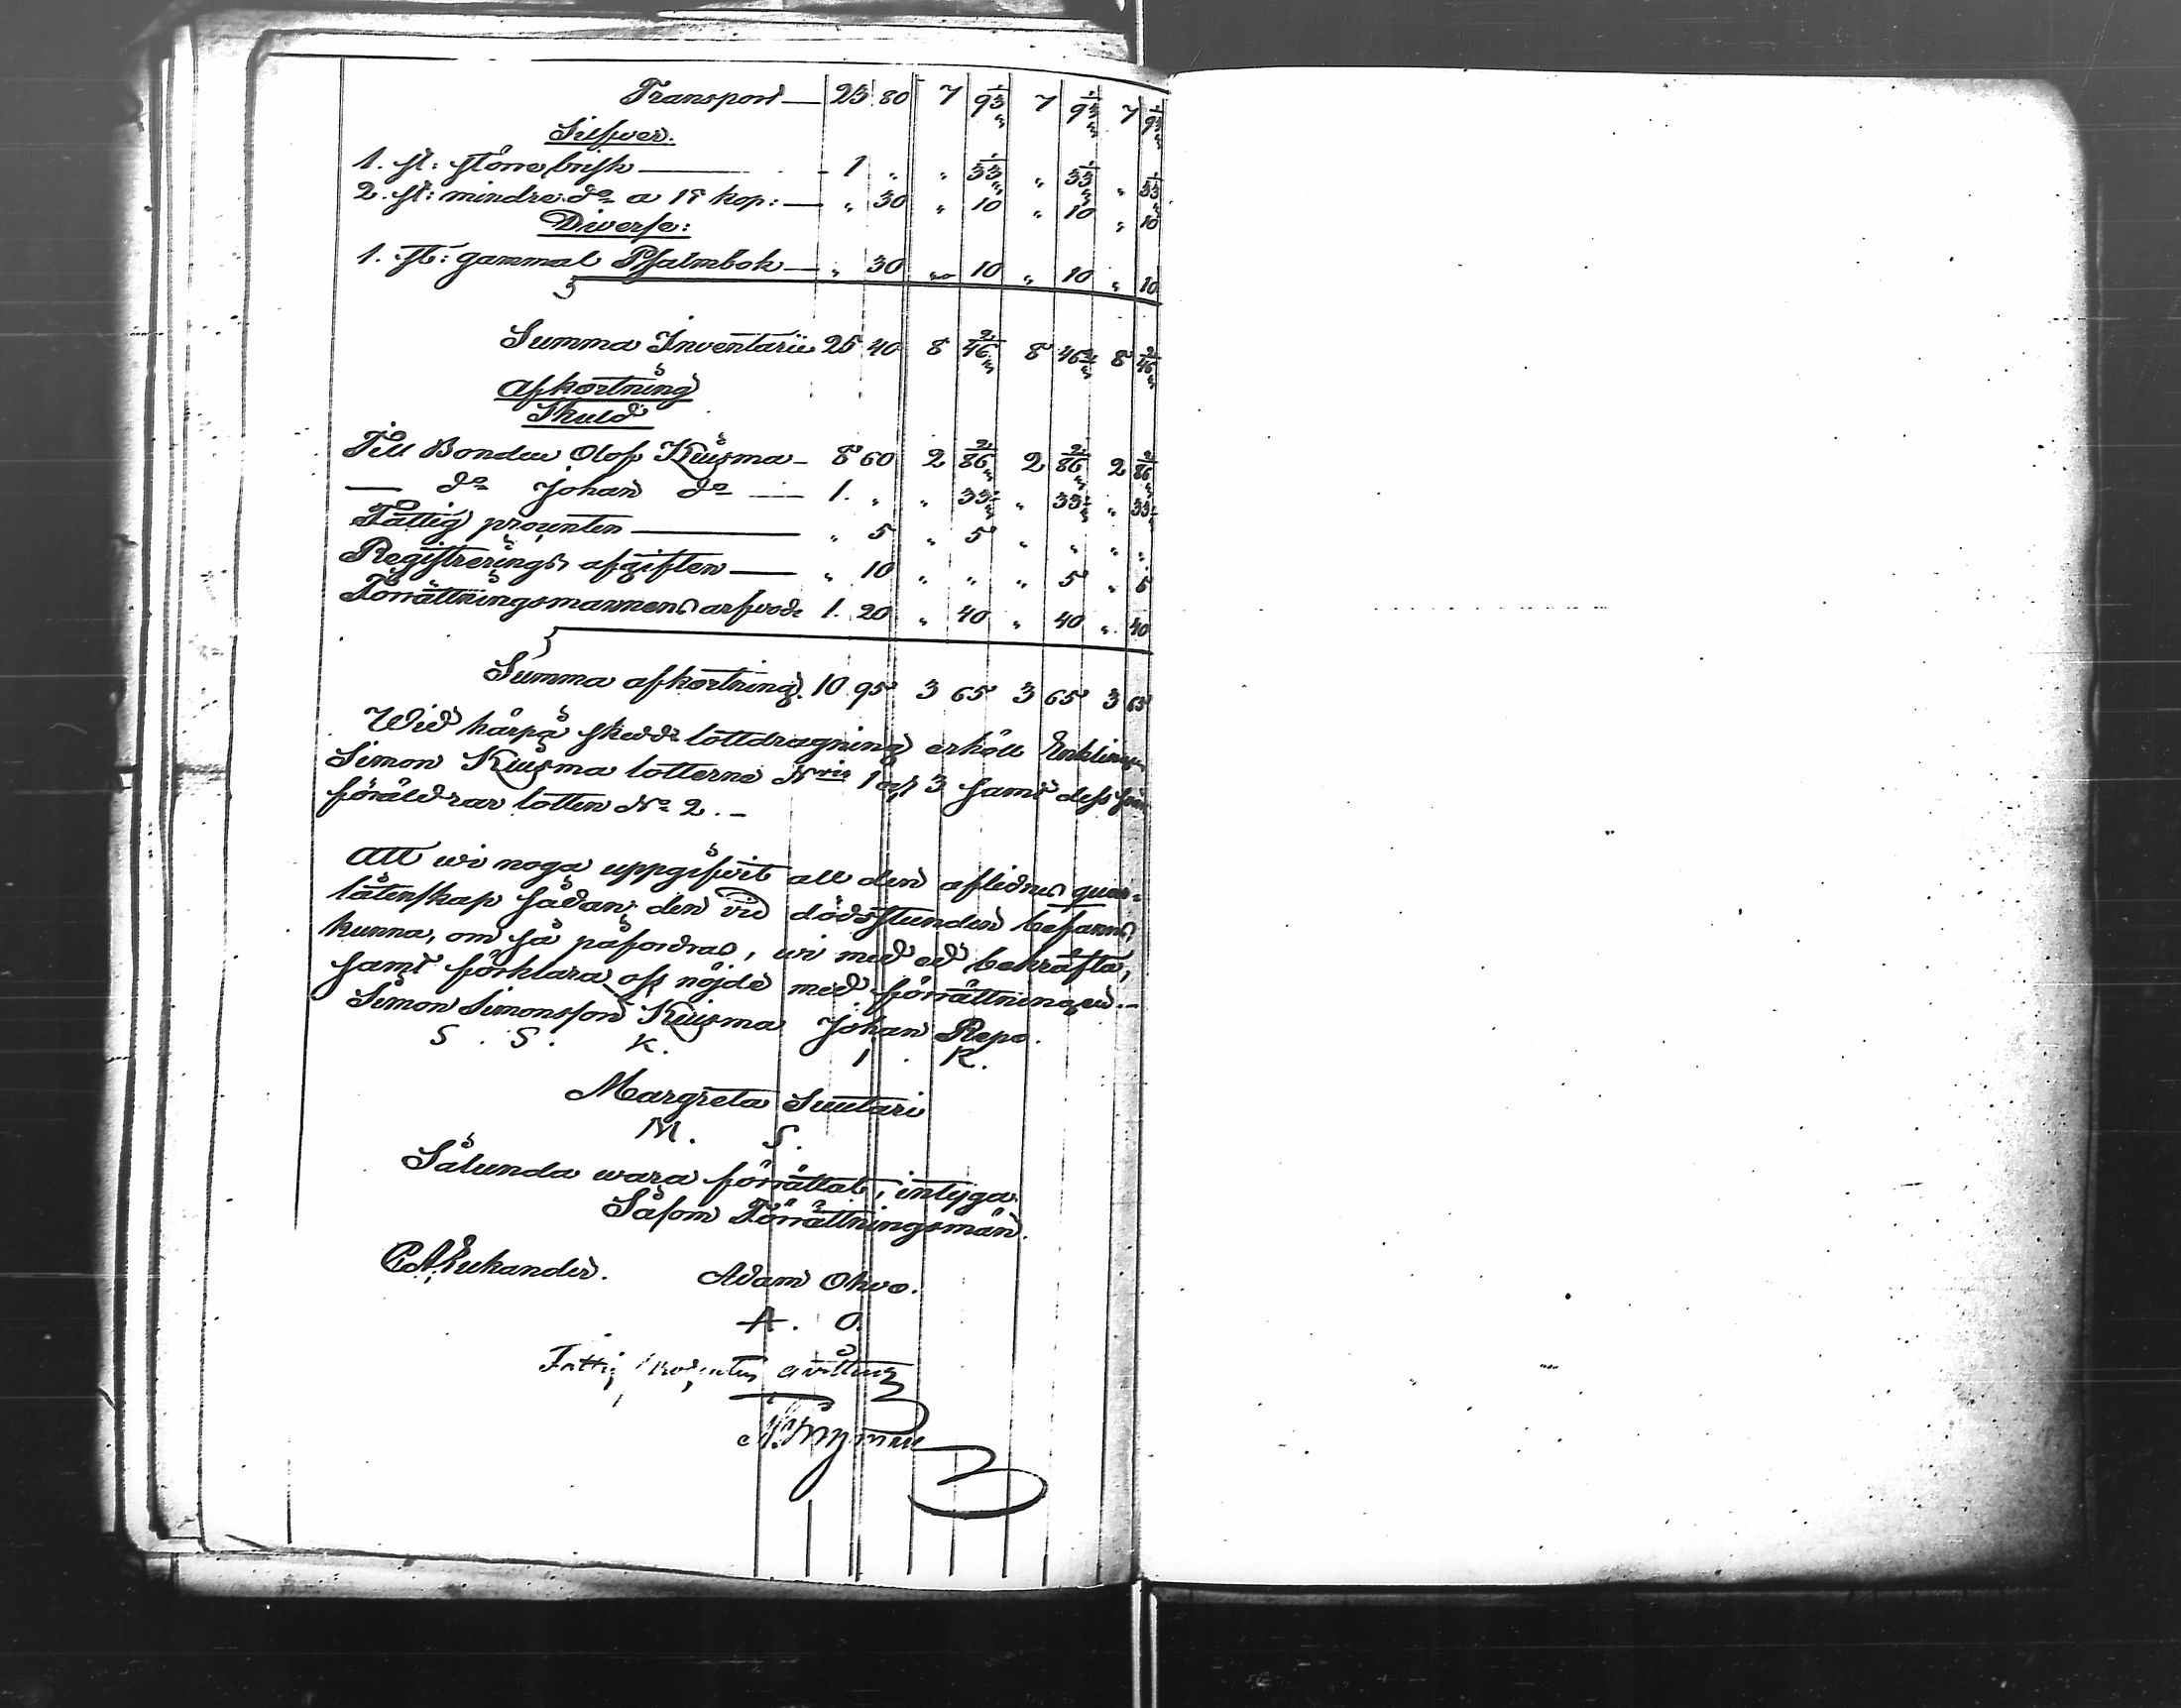 Transport — 23 80 7 9 1/3 7 9 1/3 7 9 1/3
Silfwer.
1. st: större brisk — 1 „ „ 33 1/3 „ 33 1/3 „ 33 1/3
2. st: mindre do a 15 kop: — „ 30 „ 10 „ 10 „ 10
Diverse:
1. st: gammal Psalmbok — „ 30 „ 10 „ 10 „ 10
Summa Inventarii 25 40 8 46 2/3 8 46 2/3 8 46 2/3
Afkortning
Skuld
Till Bonden Olof Kuisma — 8 60 2 86 2/3 2 86 2/3 2 86 2/3
— do Johan do — 1. „ „ 33 1/3 „ 33 1/3 „ 33 1/3
Fattig procenten — „ 5 „ 5 „ „ „ „
Registrerings afgiften — „ 10 „ „ „ 5 „ 5
Förrättningsmannens arfvode 1. 20 „ 40 „ 40 „ 40
Summa afkortning. 10 95 3 65 3 65 3 65
Wid härpå skedd lottdragning erhöll Enklingen
Simon Kuisma lotterne Nris 1 och 3 samt dess
föräldrar lotten No 2. –
Att wi noga uppgifwit all den aflidnes quar-
låtenskap sådan den vid dödsstunden befanns,
kunna, om så påfordras, wi med ed bekräfta,
samt förklara oss nöjde med förrättningen. –
Simon Simonsson Kuisma Johan Repo.
S. S. K. I. R.
Margreta Suutari
M. S.
Sålunda wara förrättat, intyga.
Såsom Förrättningsmän.
Adam Ohvo.
A. O.
Fattig procenten qvitteras